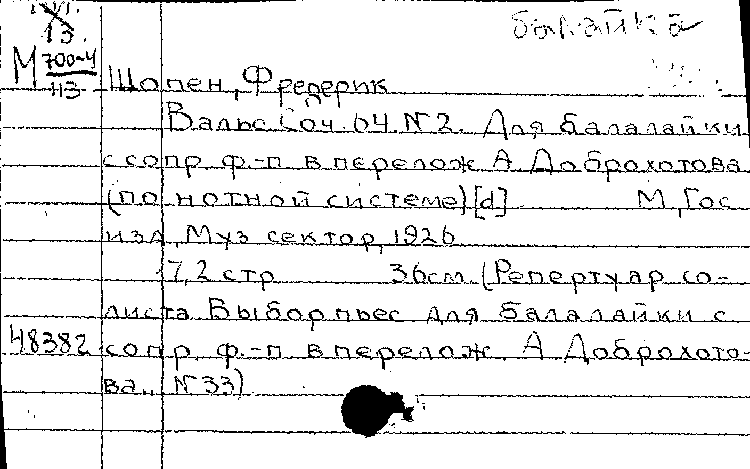 13.
балалайка
М 700-4
113
Шопен, Фредерик
Вальс Соч. 64. N 2. Для балалайки
с сопр ф.-п в перелож А Доброхотова
(по нотной системе) [d] М, Гос
изд, Муз сектор, 1926
7, 2 стр 36см. (Репертуар со-
листа Выбор пьес для балалайки с
48382 сопр, ф.-п в перелож. А Доброхото-
ва., N 33)